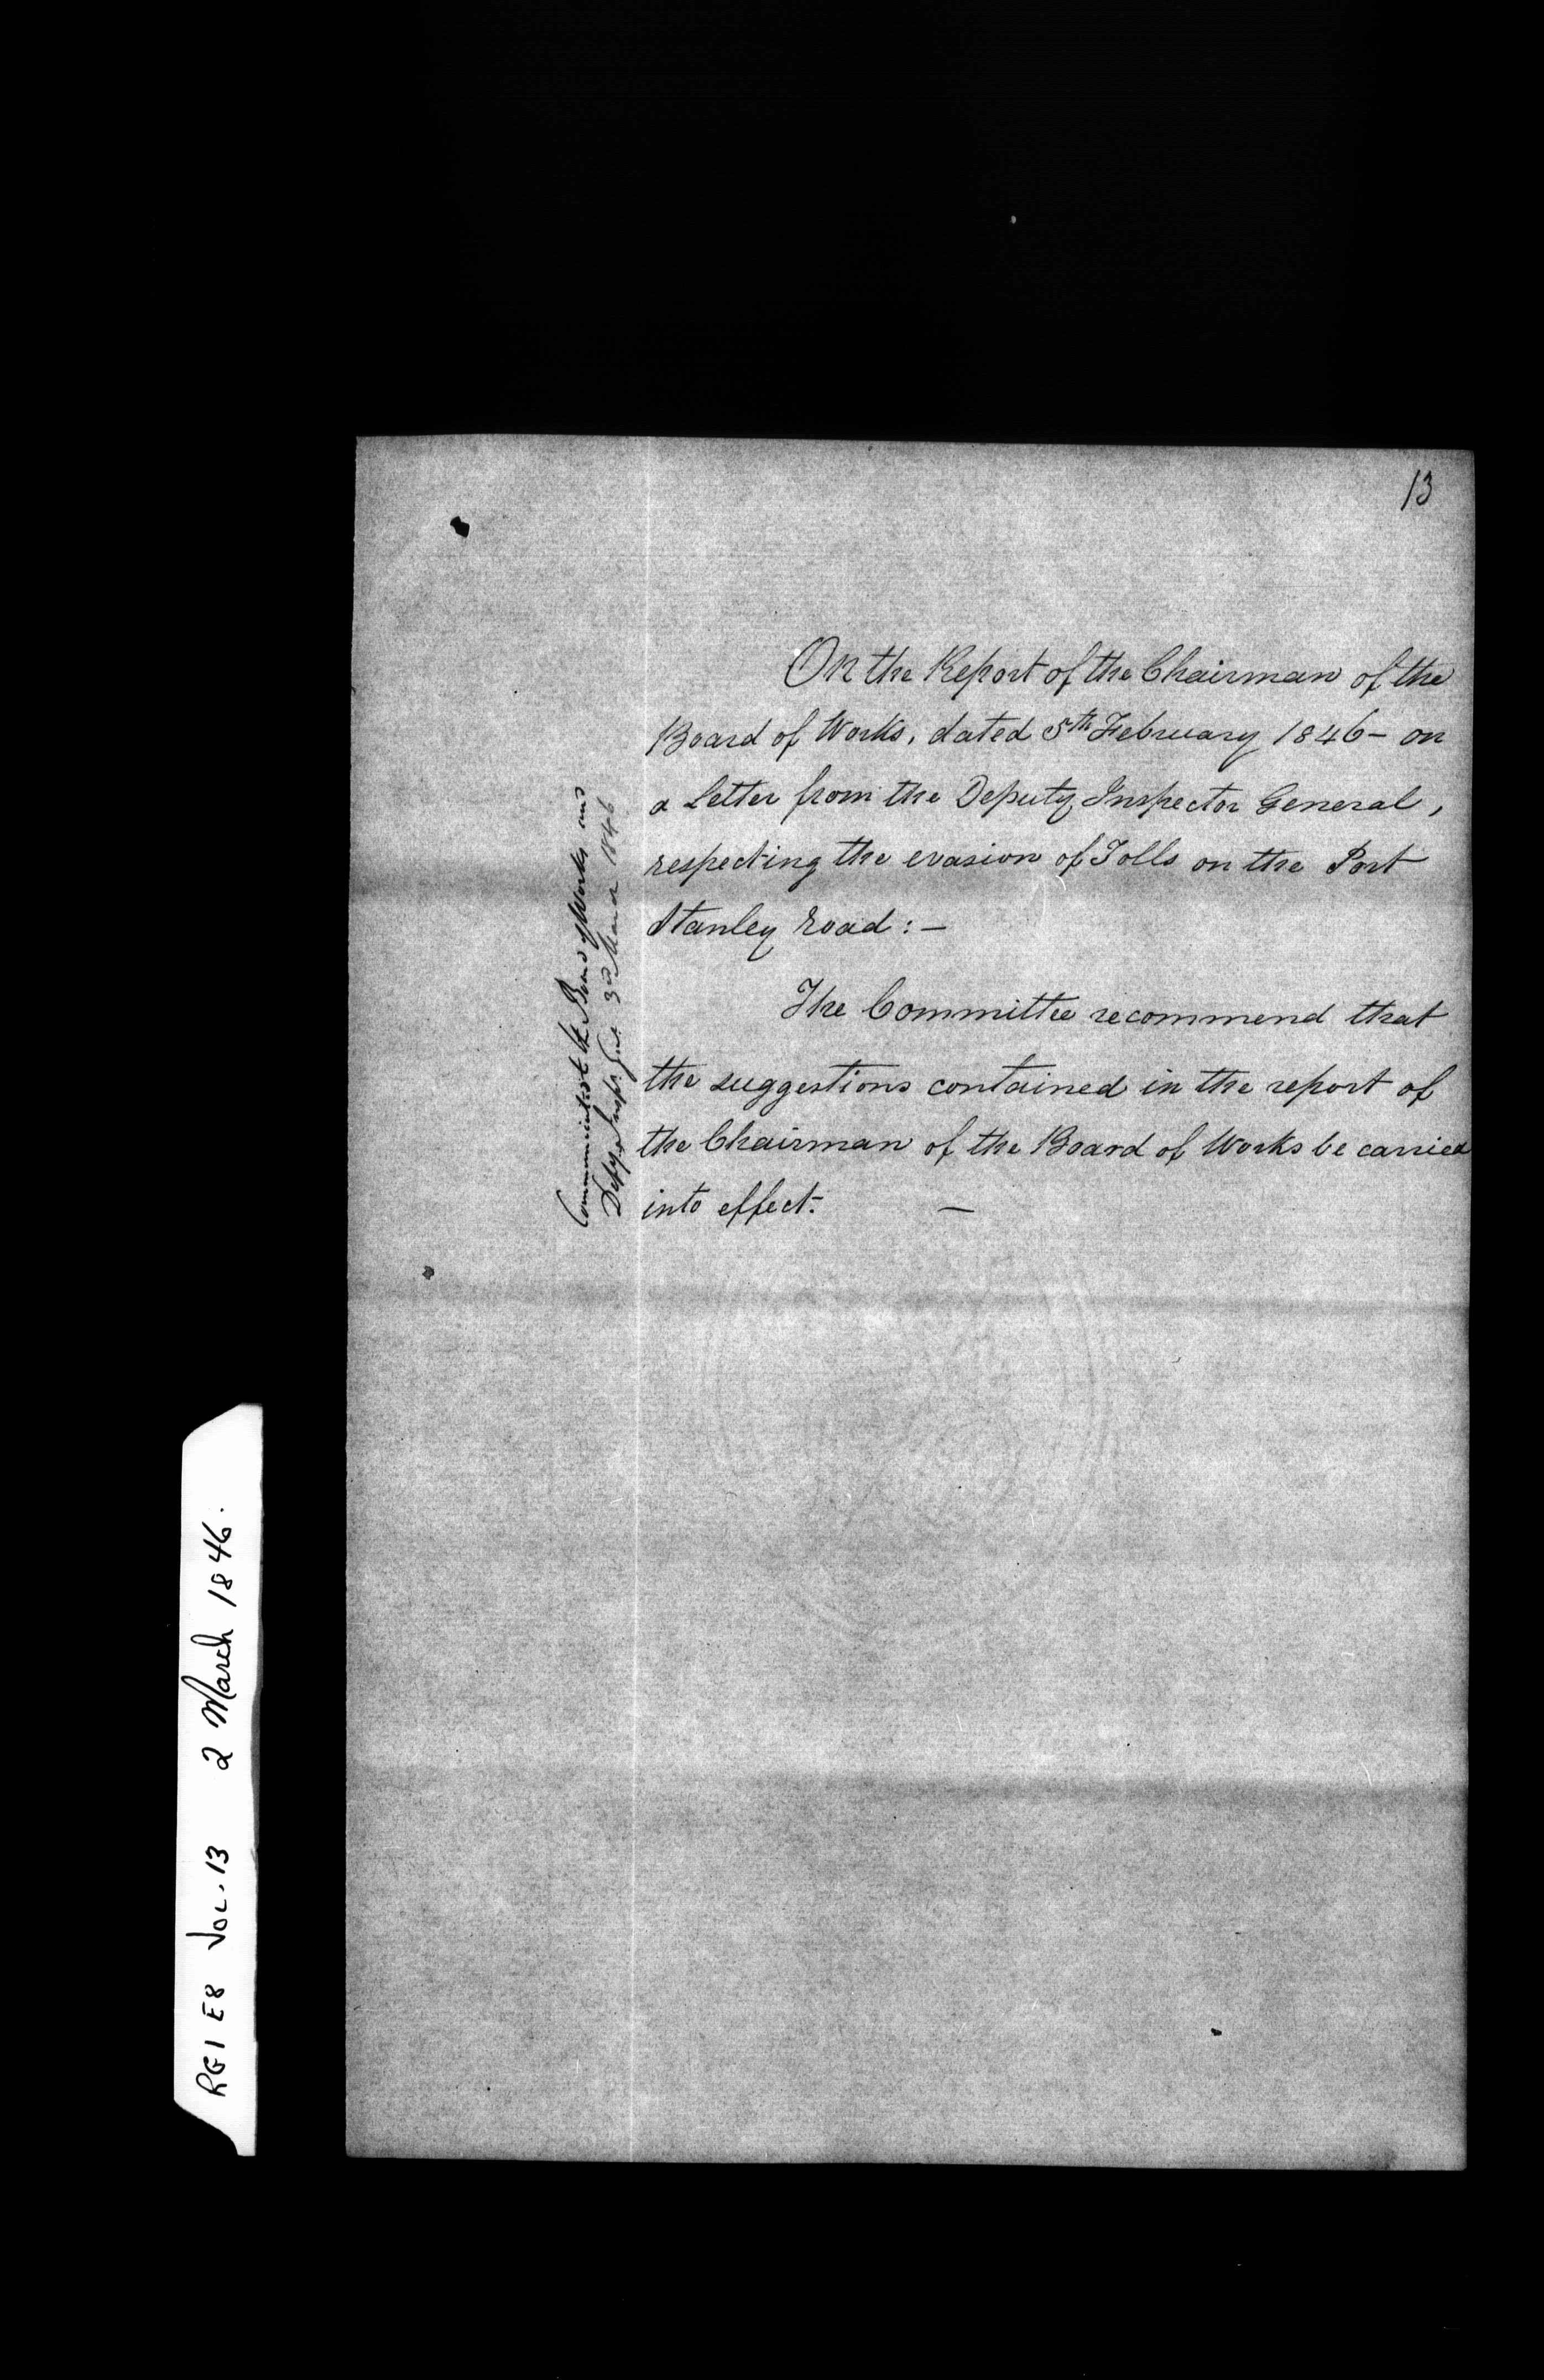 13
On the Report of the Chairman of the
Board of Works, dated 5th February 1846 - on
a Letter from the Deputy Inspector General,
respecting the evasion of Tolls on the Port
Stanley Road : -
The Committee recommend that
the suggestions contained in the report of
the Chairman of the Board of Works be carried
into effect. -
Board of Works and
Depy. Inspr. Genl. 3d March 1846
RG1 E8 VOL. 13 2 March 1846.